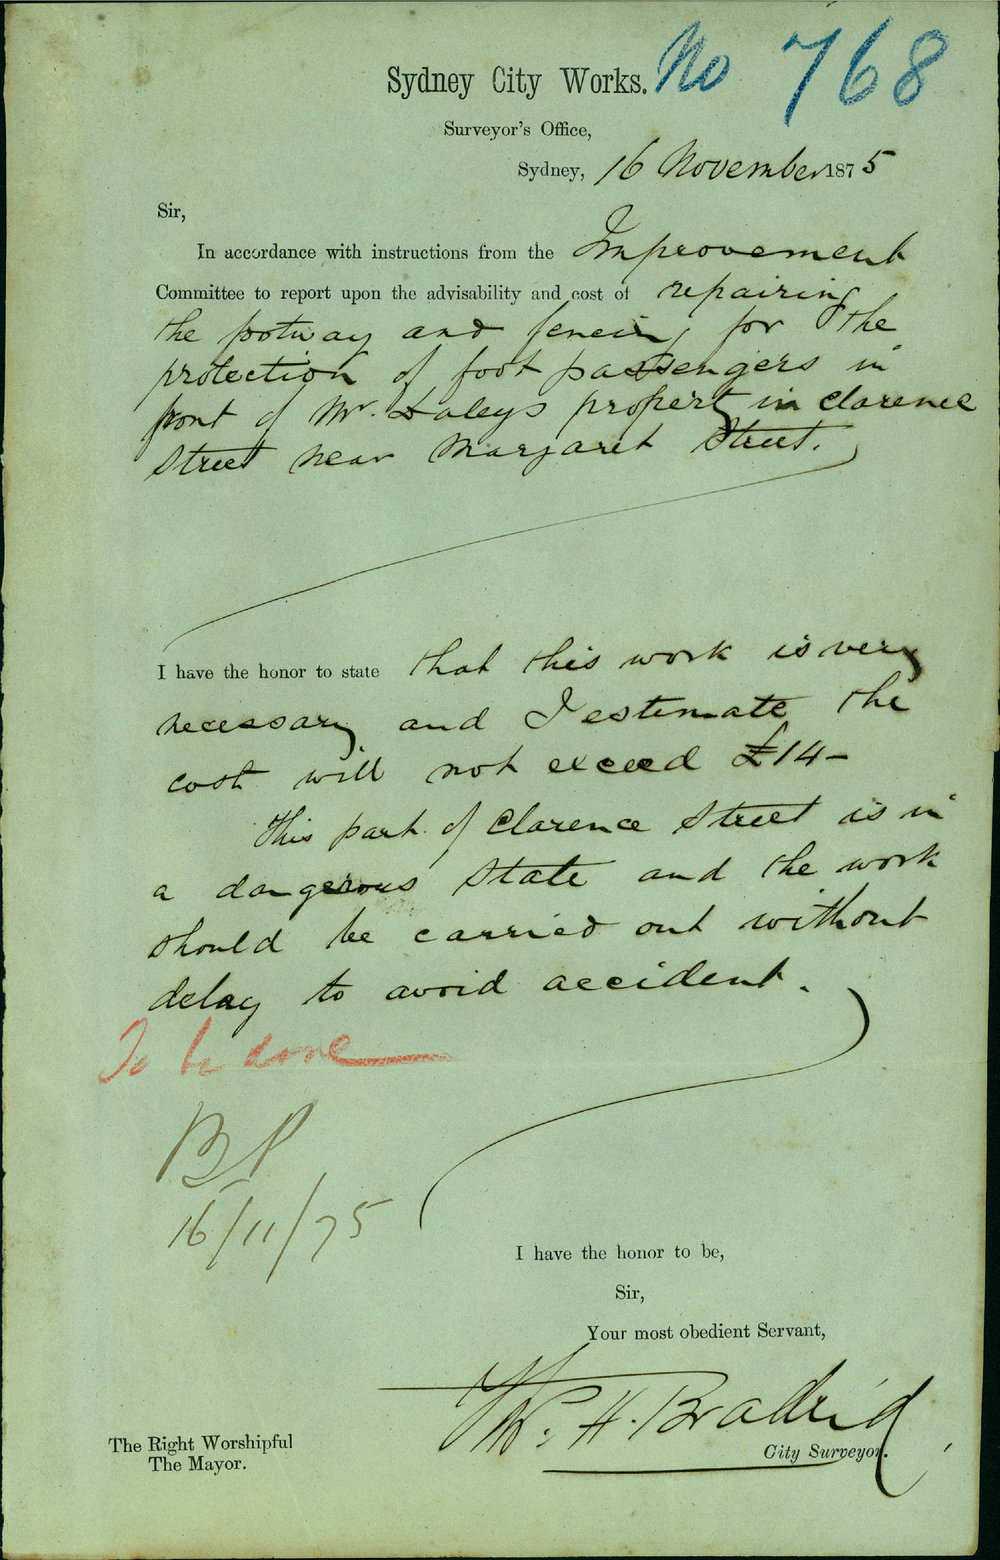 Sydney City Works. No 768
Surveyor's Office,
Sydney, 16 November 1875
Sir,
In accordance with instructions from the Improvement
Committee to report upon the advisability and cost of repairing
the footway and fencing for the
protection of foot passengers in
front of Mr. Daleys property in Clarence
Street near Margaret Street.
I have the honor to state that this work is very
necessary and I estimate the
cost will not exceed £14-
This part of Clarence Street is in
a dangerous state and the work
should be carried out without
delay to avoid accident.
To be done
BP
16/11/75
I have the honor to be,
Sir,
Your most obedient Servant,
H.
City Surveyor.
The Right Worshipful
The Mayor.